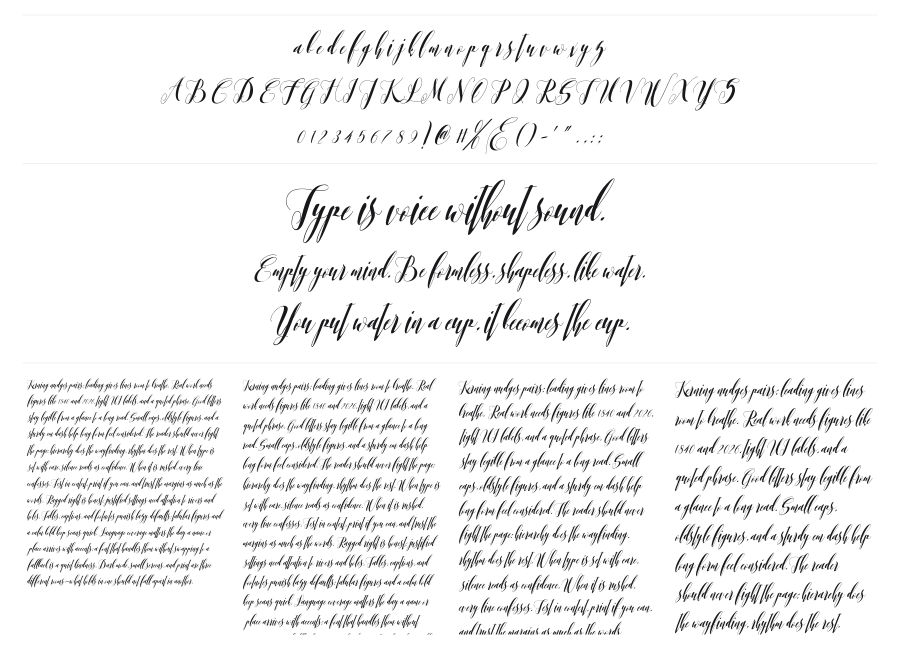 a b c d e f g h i j k l m n o p q r s t u v w x y z
A B C D E F G H I J K L M N O P Q R S T U V W X Y Z
0 1 2 3 4 5 6 7 8 9 ! @ # % & ( ) - ' " . , : ;
Type is voice without sound.
Empty your mind. Be formless, shapeless, like water.
You put water in a cup, it becomes the cup.
Kerning nudges pairs; leading gives lines room to breathe. Real work needs
figures like 1840 and 2026, tight UI labels, and a quoted phrase. Good letters
stay legible from a glance to a long read. Small caps, oldstyle figures, and a
sturdy en dash help long form feel considered. The reader should never fight
the page: hierarchy does the wayfinding, rhythm does the rest. When type is
set with care, silence reads as confidence. When it is rushed, every line
confesses. Test in context, print if you can, and trust the margins as much as the
words. Ragged right is honest; justified settings need attention to rivers and
holes. Tables, captions, and footnotes punish lazy defaults: tabular figures and
a calm bold keep scans quiet. Language coverage matters the day a name or
place arrives with accents: a font that handles them without swapping to a
fallback is a quiet kindness. Dark mode, small screens, and print are three
different rooms: what holds in one should at full point in another.
Kerning nudges pairs; leading gives lines room to breathe. Real
work needs figures like 1840 and 2026, tight UI labels, and a
quoted phrase. Good letters stay legible from a glance to a long
read. Small caps, oldstyle figures, and a sturdy en dash help
long form feel considered. The reader should never fight the page:
hierarchy does the wayfinding, rhythm does the rest. When type is
set with care, silence reads as confidence. When it is rushed,
every line confesses. Test in context, print if you can, and trust the
margins as much as the words. Ragged right is honest; justified
settings need attention to rivers and holes. Tables, captions, and
footnotes punish lazy defaults: tabular figures and a calm bold
keep scans quiet. Language coverage matters the day a name or
place arrives with accents: a font that handles them without
Kerning nudges pairs; leading gives lines room to
breathe. Real work needs figures like 1840 and 2026,
tight UI labels, and a quoted phrase. Good letters
stay legible from a glance to a long read. Small
caps, oldstyle figures, and a sturdy en dash help
long form feel considered. The reader should never
fight the page: hierarchy does the wayfinding,
rhythm does the rest. When type is set with care,
silence reads as confidence. When it is rushed,
every line confesses. Test in context, print if you can,
and trust the margins as much as the words.
Kerning nudges pairs; leading gives lines
room to breathe. Real work needs figures like
1840 and 2026, tight UI labels, and a
quoted phrase. Good letters stay legible from
a glance to a long read. Small caps,
oldstyle figures, and a sturdy en dash help
long form feel considered. The reader
should never fight the page: hierarchy does
the wayfinding, rhythm does the rest.